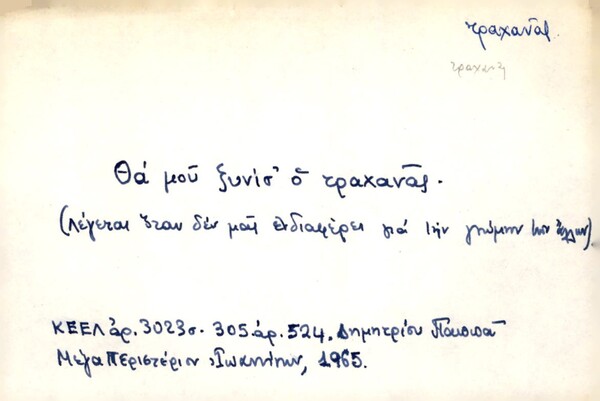 τραχανᾶς.
τραχανᾶς
Θά μοῦ ξυνίσ' ὁ τραχανᾶς.
(Λέγεται ὅταν δέν μᾶς ἐνδιαφέρει γιά τήν γνώμην τῶν ἄλλων).
ΚΕΕΛ ἀρ. 3023 σ. 305 ἀρ. 524, Δημητρίου
Μεγα Περιστέριον Ἰωαννίνων, 1965.